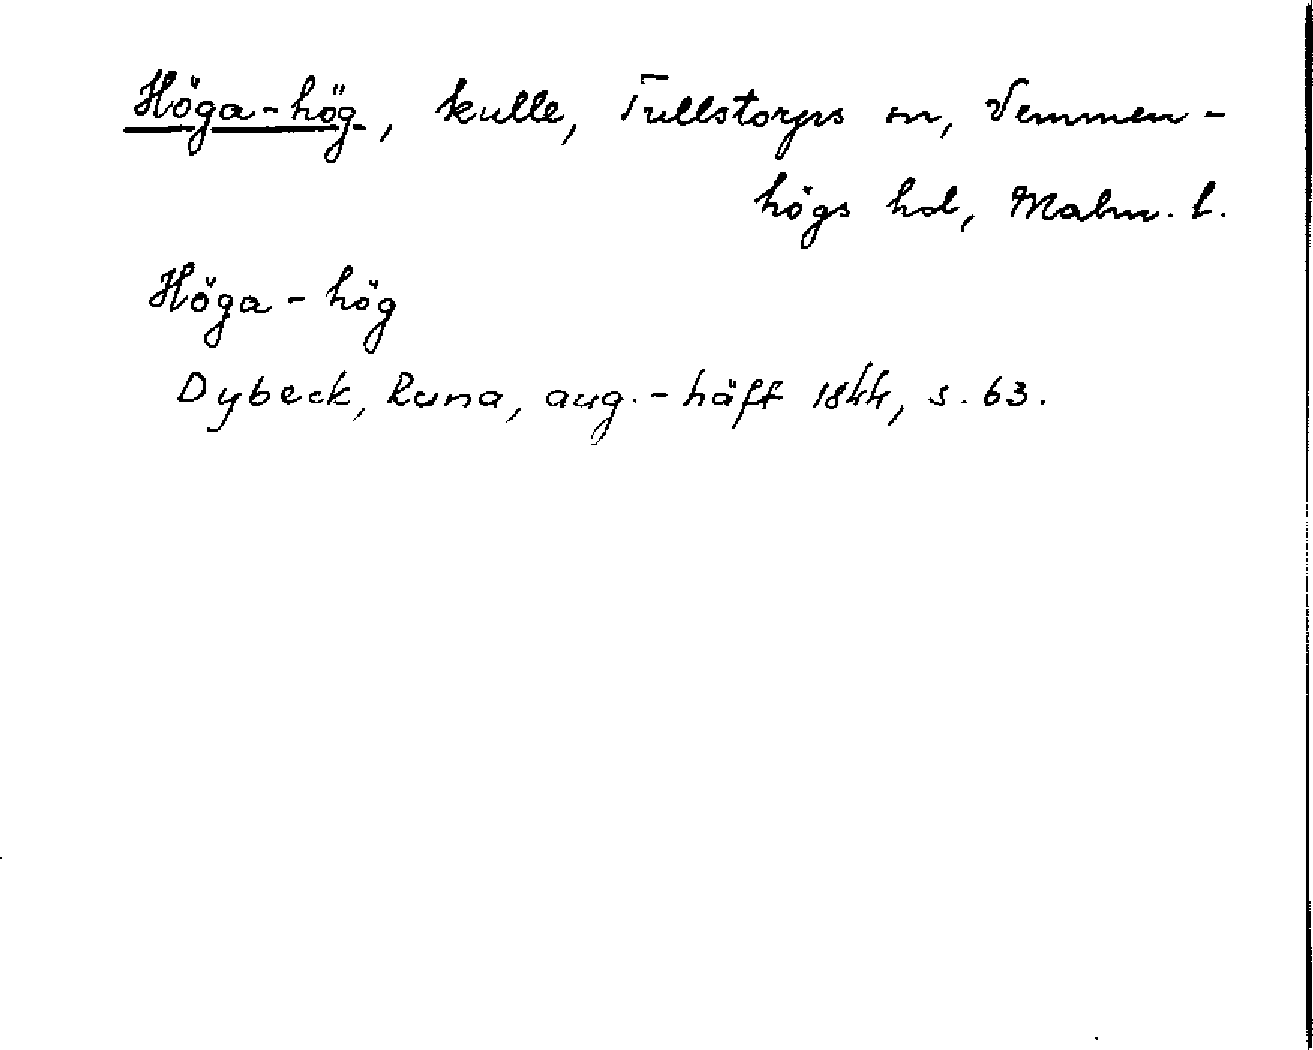 Höga-hög, kulle, Tullstorps sn, Vemmen-
högs hd, Malm. l.
Höga-hög
Dybeck, Runa, aug.-häft 1844, s. 63.